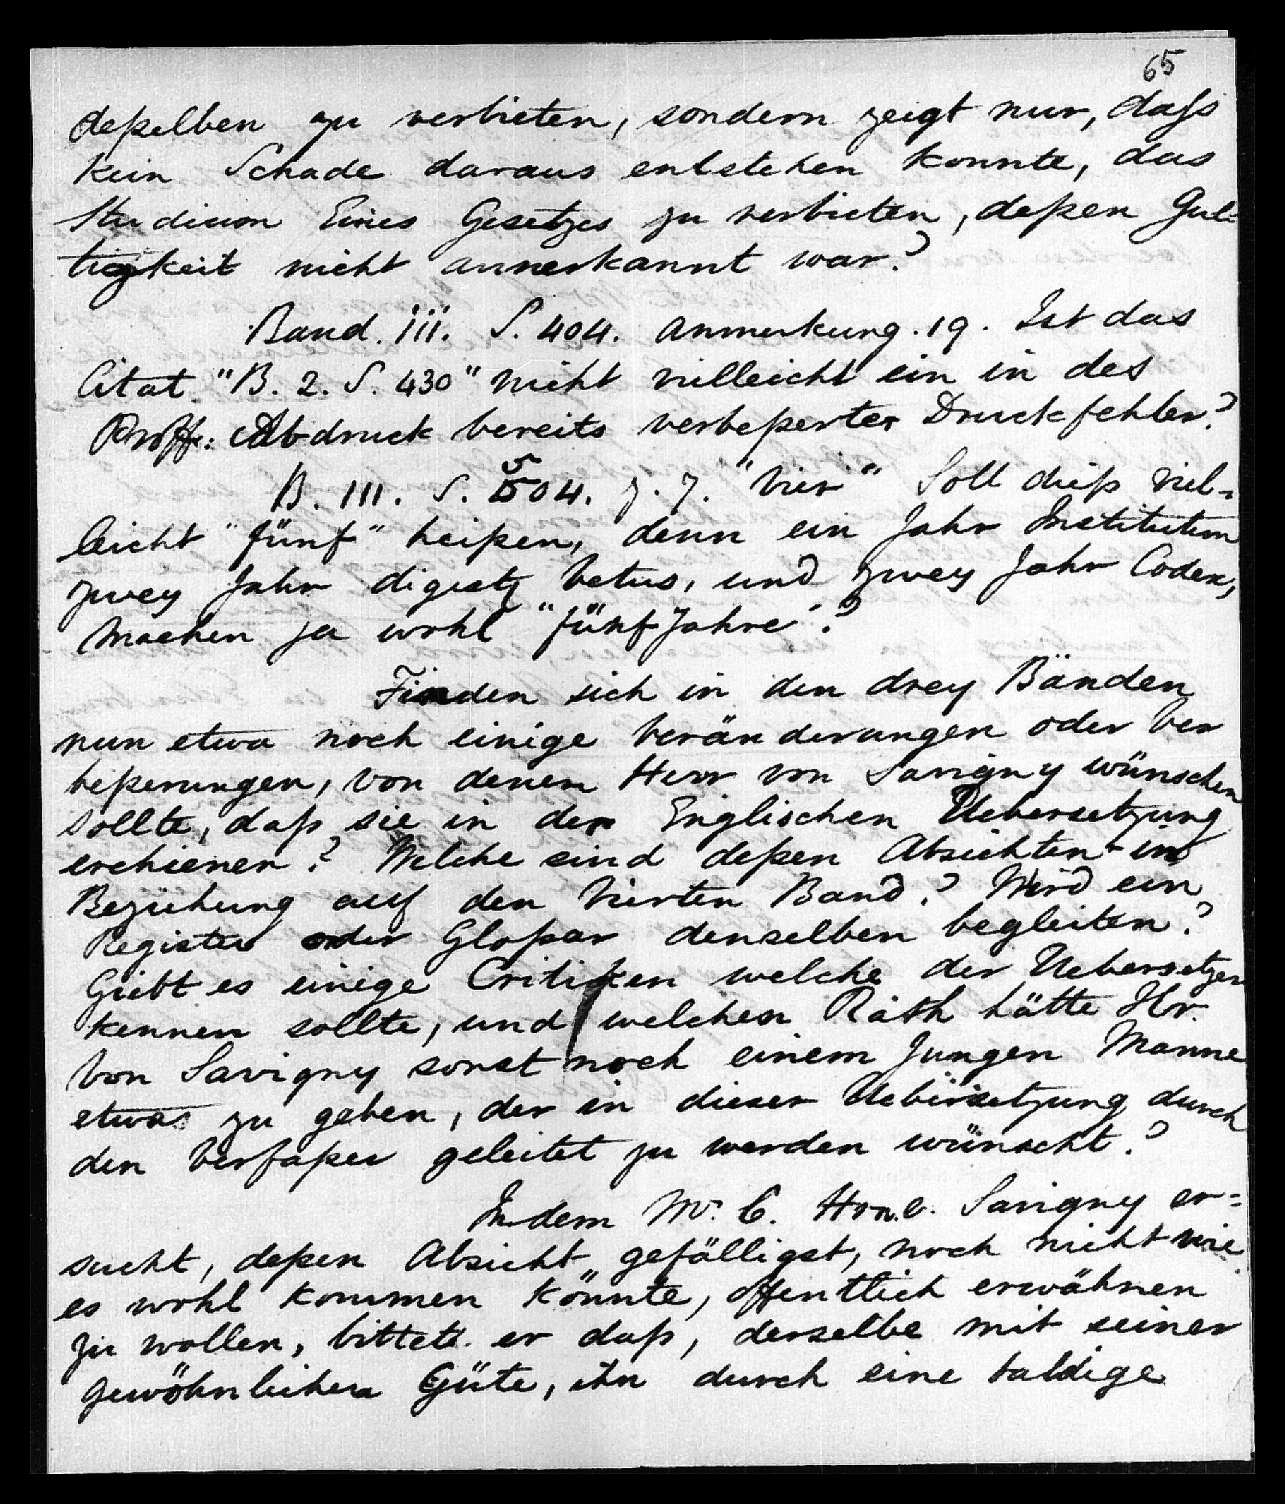 65
deßelben zu verbieten, sondern zeigt nur, daſs
kein Schade daraus entstehen konnte, das
Studium Eines Gesetzes zu verbieten, deßen Gul-
tigkeit nicht annerkannt war?
Band. III. S. 404. Anmerkung. 19. Ist das
Citat "B. 2. S. 430" nicht villeicht ein in des
Proff: Abdruck bereits verbeßerter Druckfehler?
B. III. S. 504. z. 7. "Vier" Soll dieß viel=
leicht "fünf" heißen, denn ein Jahr Institution
zwey Jahr digestz Vetus, und zwey Jahr Codex,
machen ja wohl "fünf Jahre"?
Finden sich in den drey Bänden
nun etwa noch einige Veränderungen oder Ver
beßerungen, von denen Herr von Savigny wünschen
sollte, daß sie in der Englischen Uebersetzung
erchienen? Welche sind deßen Absichten in
Beziehung auf den Vierten Band? Wird ein
Register oder Gloßar denselben begleiten?
Giebt es einige Critiken welche der Uebersetzer
kennen sollte, und welchen Rath hätte Hr.
Von Savigny sonst noch einem Jungen Manne
etwas zu geben, der in dieser Uebersetzung durch
den Verfaßer geleitet zu werden wünscht?
Indem Mr. C. Hrn. v. Savigny er=
sucht, deßen Absicht gefälligst, noch nicht wie
es wohl kommen könnte, öffentlich erwähnen
zu wollen, bittet er daß, derselbe mit seiner
gewöhnlichen Güte, ihn durch eine baldige